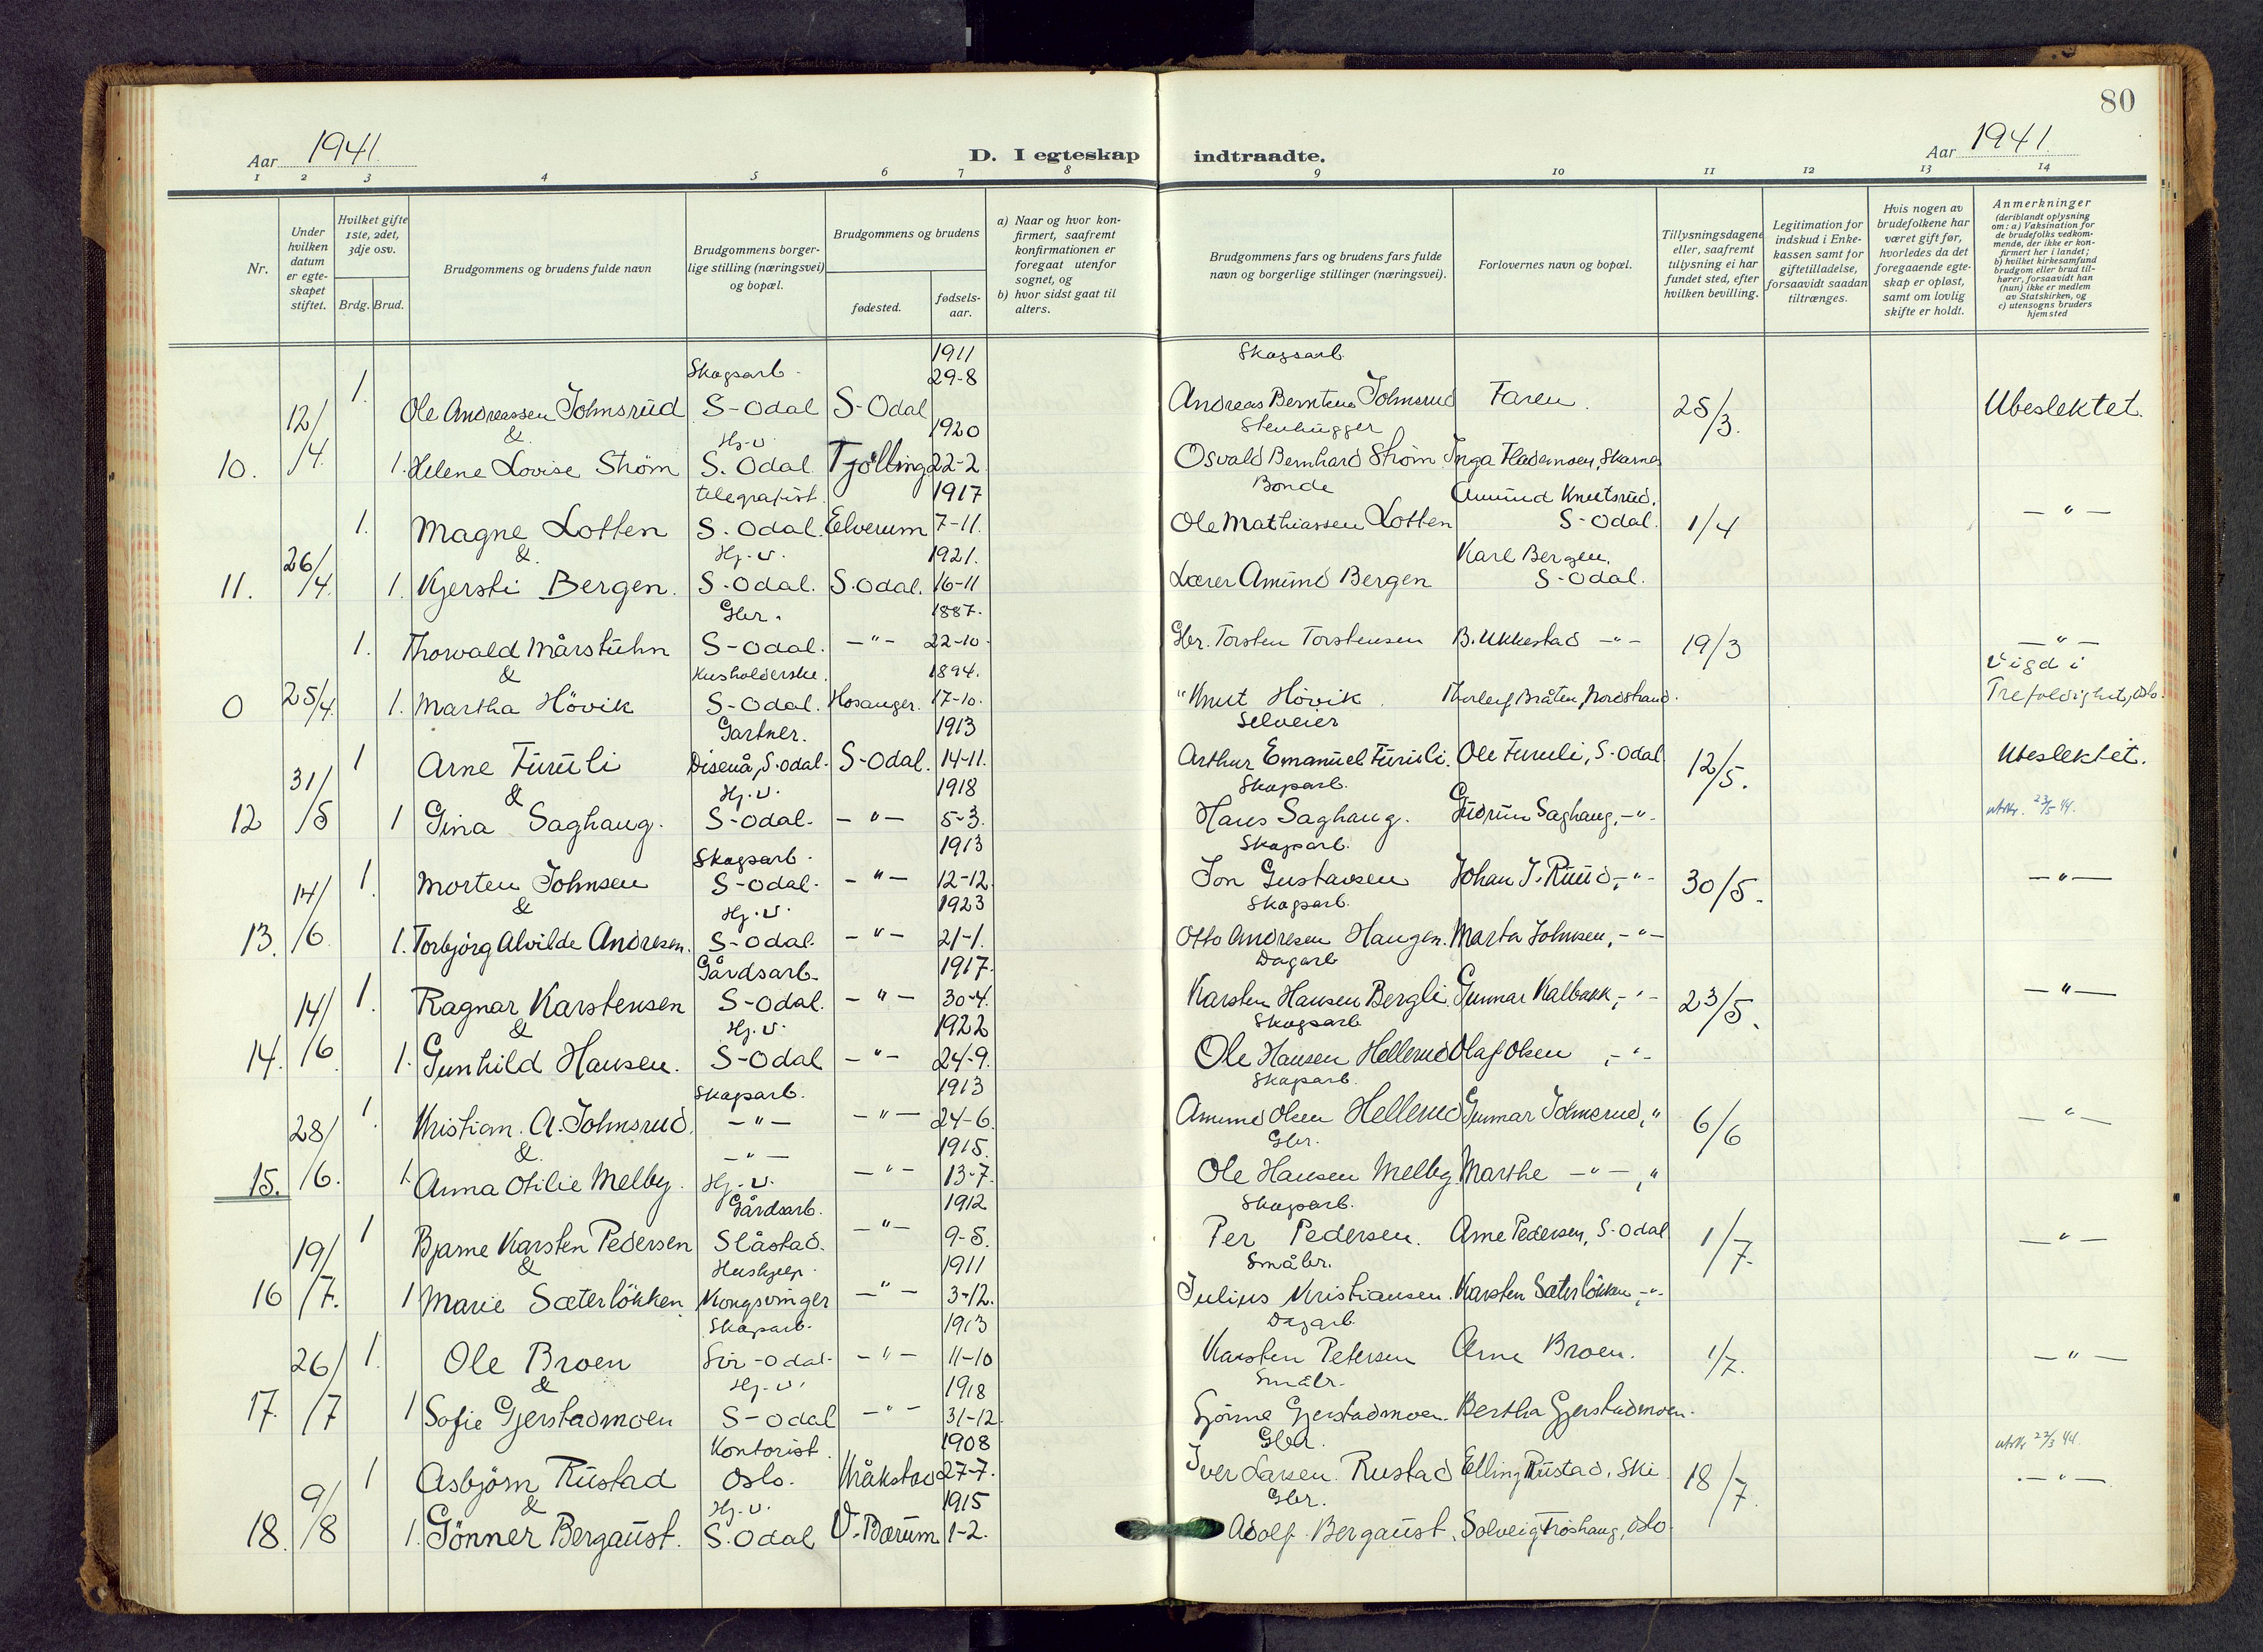 80
Aar 1941.
D. I egteskap indtraadte.
Aar 1941.
1 2 3 4 5 6 7 8 9 10 11 12 13 14
Nr.
Under hvilken datum er egteskapet stiftet.
Hvilket gifte 1ste, 2det, 3dje osv.
Brdg. Brud.
Brudgommens og brudens fulde navn
Brudgommens borgerlige stilling (næringsvei) og bopæl.
Brudgommens og brudens
fødested.
fødselsaar.
a) Naar og hvor konfirmert, saafremt konfirmationen er foregaat utenfor sognet, og
b) hvor sidst gaat til alters.
Brudgommens fars og brudens fars fulde navn og borgerlige stillinger (næringsvei).
Forlovernes navn og bopæl.
Tillysningsdagene eller, saafremt tillysning ei har fundet sted, efter hvilken bevilling.
Legitimation for indskud i Enkekassen samt for giftetilladelse, forsaavidt saadan tiltrænges.
Hvis nogen av brudefolkene har været gift før, hvorledes da det foregaaende egteskap er opløst, samt om lovlig skifte er holdt.
Anmerkninger
(deriblandt oplysning om: a) Vaksination for de brudefolks vedkommende, der ikke er konfirmert her i landet; b) hvilket kirkesamfund brudgom eller brud tilhører, forsaavidt han (hun) ikke er medlem av Statskirken, og c) utensogns bruders hjemsted
Skogsarb. 1911 Skogsarb.
12/4 1. Ole Andreassen Johnsrud S-Odal S-Odal 29-8 Andreas Berntsen Johnsrud Faren. 25/3. Ubeslektet.
& Hj.v. 1920 Stenhugger
10. 1. Helene Lovise Strøm S. Odal Tjølling 22-2 Osvald Bernhard Strøm Inga , Skarnes
telegrafist. 1917 Bonde Amund Knutsrud,
26/4 1. Magne Lotten S. Odal. Elverum 7-11. Ole Mathiassen Lotten S-Odal. 1/4 -"-
& Hj.v. 1921. Karl Bergen,
11. 1. Kjersti Bergen. S-Odal. S. Odal. 16-11 Lærer Amund Bergen S-Odal.
Gbr. 1887.
25/4. 1. Thorvald Mårstuhn S-Odal. -"- 22-10. Gbr. Torsten Torstensen B. Ukkestad -"- 19/3 -"-
& Husholderske. 1894. Vigd i
0 1. Martha Hövik S-Odal. Hosanger. 17-10. " Knut Hövik. Thorleif Bråten, Nordstrand. Trefoldighet, Oslo.
Gartner. 1913 Selveier
31/5 1 Arne Furuli Disenå, S.odal. S-Odal. 14-11. Arthur Emanuel Furuli. Ole Furuli, S-Odal 12/5. Ubeslektet.
& Hj.v. 1918 Skogsarb.
12 1 Gina Saghaug. S-Odal. -"- 5-3. Hans Saghaug. Gudrun Saghaug, -"- 
Skogsarb. 1913 Skogsarb.
14/6 1. Morten Johnsen S-Odal. -"- 12-12. Jon Gustavsen Johan J. Ruud, -"- 30/5. -"-
& Hj.v. 1923 Skogsarb.
13. 1. Torbjörg Alvilde Andresen. S-Odal. -"- 21-1. Otto Andresen Haugen. Marta Johnsen, -"-
Gårdsarb. 1917. Dagarb
14/6 1. Ragnar Karstensen S-Odal. -"- 30-4. Karsten Hansen Bergli. Gunnar Kalbakk, -"- 23/5. -"-
& Hj.v. 1922 Skogsarb
14. 1. Gunhild Hansen. S-Odal -"- 24-9. Ole Hansen Hellerud Olaf Olsen, -"-
Skogsarb. 1913 Skogsarb.
28/6. 1. Kristian. A. Johnsrud. -"- -"- 24-6. Amund Olsen Hellerud Gunnar Johnsrud, " 6/6 -"-
& -"- 1915. Gbr.
15. 1. Anna Otilie Melby. Hj.v. -"- 13-7. Ole Hansen Melby. Marthe -"-, "
Gårdsarb. 1912 Skogsarb.
19/7. 1 Bjarne Karsten Pedersen Slåstad. -"- 9-5. Per Pedersen. Arne Pedersen, S-Odal 1/7. -"-
& Hushjelp. 1911 Småbr.
16 1 Marie Sæterlökken Kongsvinger -"- 3-12. Julius Kristiansen. Karsten Sæterlökken, -"-
Skogsarb. 1913 Dagarb.
26/7 1. Ole Broen Sør-Odal. -"- 11-10 Karsten Petersen Arne Broen. 1/7. -"-
& Hj.v. 1918 Småbr.
17. 1 Sofie Gjerstadmoen S-Odal -"- 31-12. Gjerstadmoen. Bertha Gjerstadmoen.
Kontorist. 1908 Gbr.
9/8 1 Asbjörn Rustad Oslo. Kråkstad 27-7. Iver Larsen Rustad Elling Rustad, Ski 18/7. -"-
& Hj.v. 1915 Gbr.
18. 1. Gönner Bergaust. S.Odal V. Bærum 1-2. Adolf Bergaust. Solveig Froshaug, Oslo.